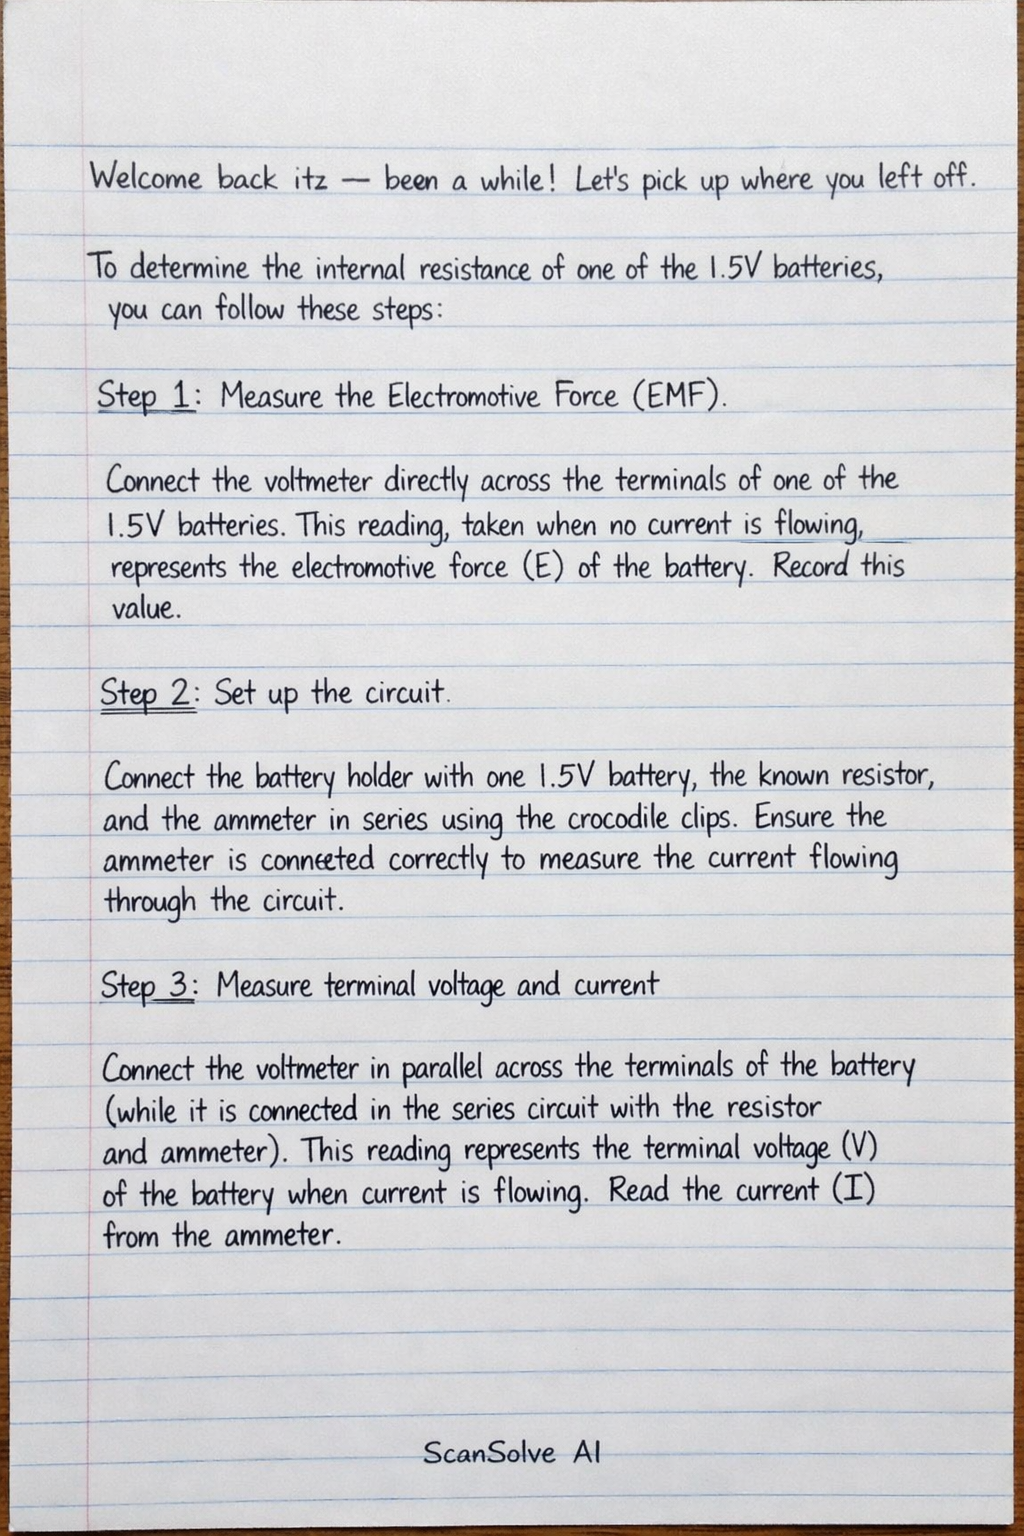 Welcome back itz — been a while! Let's pick up where you left off.
To determine the internal resistance of one of the 1.5V batteries,
you can follow these steps:
Step 1: Measure the Electromotive Force (EMF).
Connect the voltmeter directly across the terminals of one of the
1.5V batteries. This reading, taken when no current is flowing,
represents the electromotive force (E) of the battery. Record this
value.
Step 2: Set up the circuit.
Connect the battery holder with one 1.5V battery, the known resistor,
and the ammeter in series using the crocodile clips. Ensure the
ammeter is connected correctly to measure the current flowing
through the circuit.
Step 3: Measure terminal voltage and current
Connect the voltmeter in parallel across the terminals of the battery
(while it is connected in the series circuit with the resistor
and ammeter). This reading represents the terminal voltage (V)
of the battery when current is flowing. Read the current (I)
from the ammeter.
ScanSolve AI